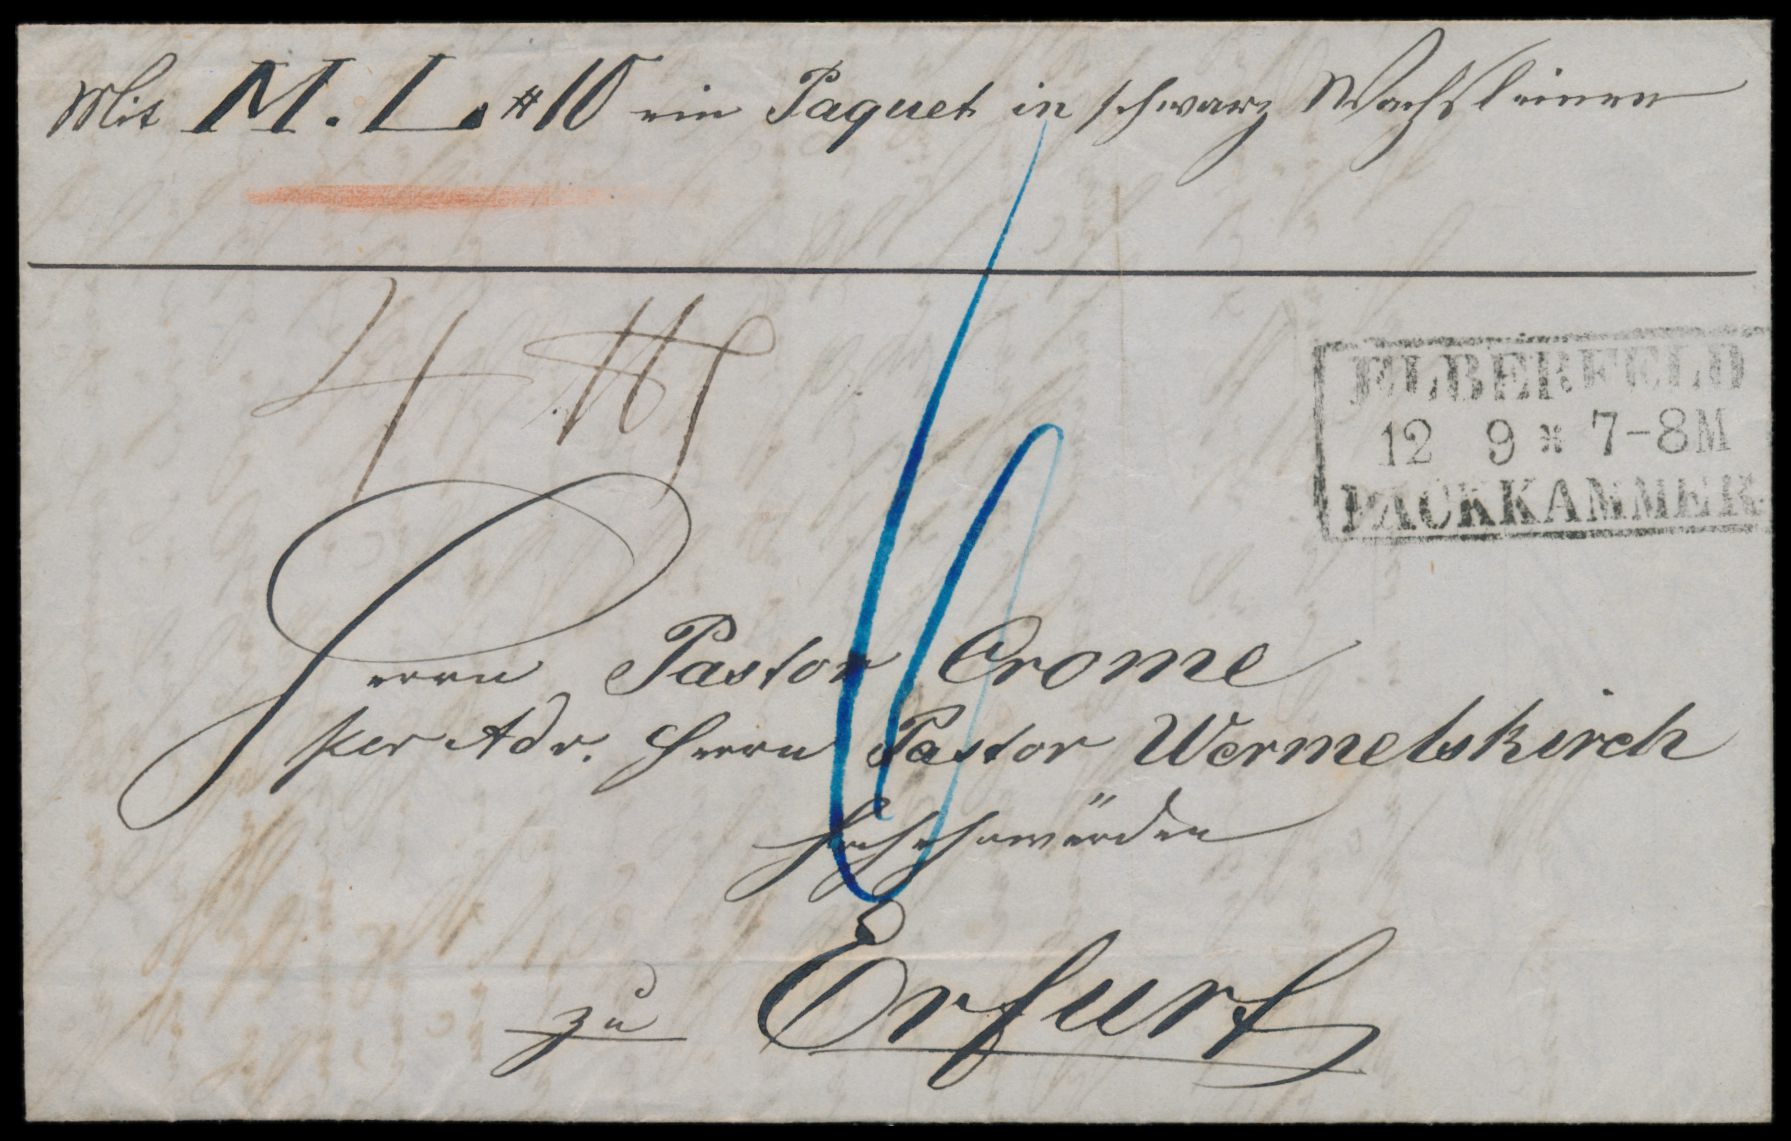 Mit M. L. #10 ein Paquet in schwarz Wachsleinen
4
ELBERFELD
12 9 * 7-8M
PACKKAMMER
6
Herrn Pastor Crome
per Adr. Herrn Pastor Wermelskirch
Hochehrwürden
zu Erfurt